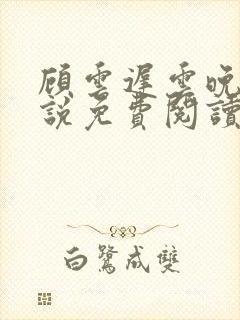 顾雲遲雲晚
說免費閱讀
白鷺成雙